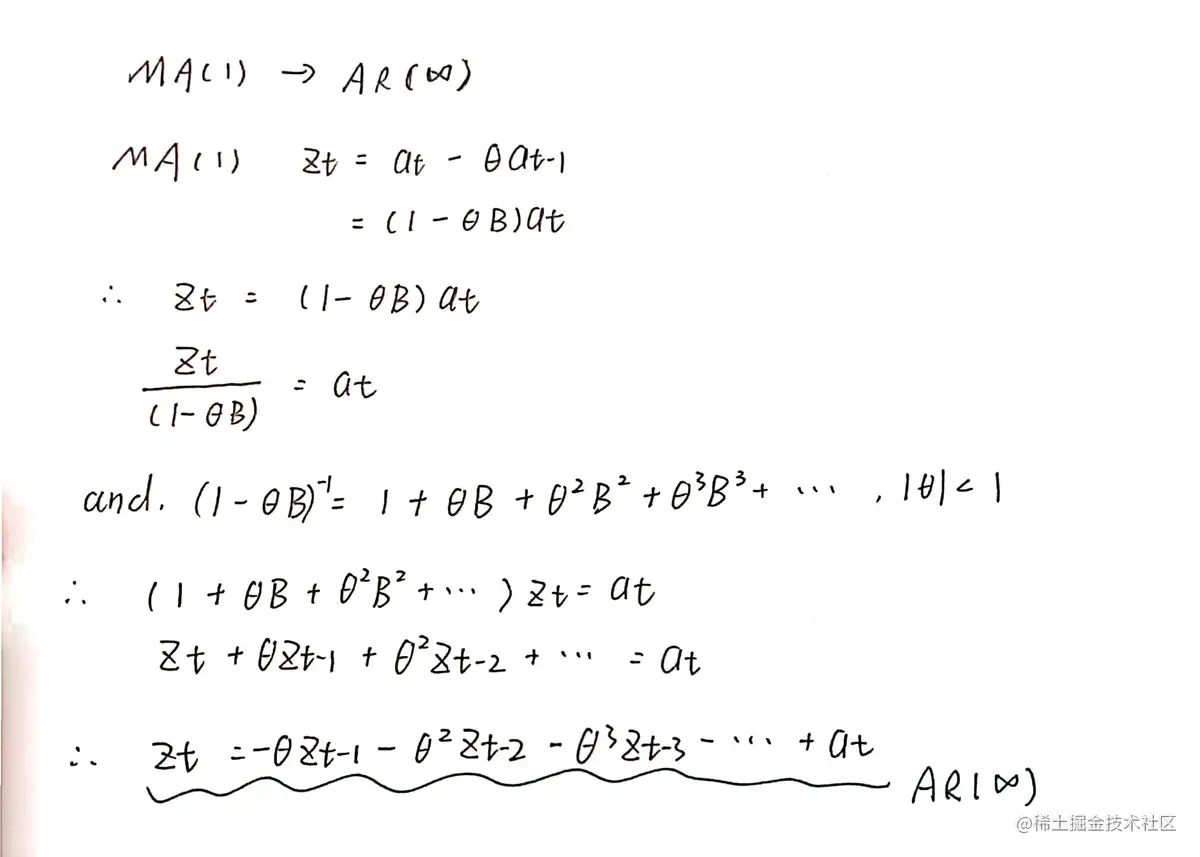 MA(1) → AR(∞)
MA(1) Zt = at - θat-1
= (1 - θB)at
∴ Zt = (1 - θB)at
Zt
―――― = at
(1 - θB)
and. (1 - θB)⁻¹ = 1 + θB + θ²B² + θ³B³ + ⋯ , |θ| < 1
∴ (1 + θB + θ²B² + ⋯ ) Zt = at
Zt + θZt-1 + θ²Zt-2 + ⋯ = at
∴ Zt = -θZt-1 - θ²Zt-2 - θ³Zt-3 - ⋯ + at
AR(∞)
@稀土掘金技术社区